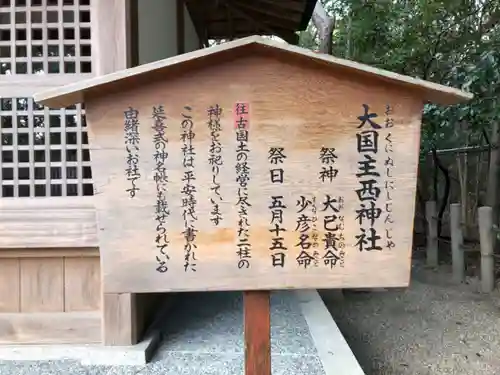 大国主西神社
おおくにぬしにしじんじゃ
祭神
大己貴命
おおなむちのみこと
少彦名命
すくなひこなのみこと
祭日 五月十五日
往古国土の経営に尽された二柱の
神様をお祀りしています
この神社は平安時代に書かれた
延喜式の神名帳にも載せられている
由緒深いお社です